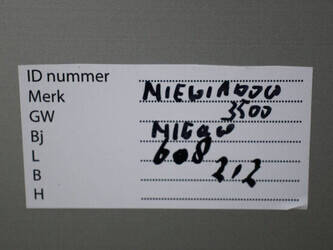 ID nummer
Merk NIEWIADOW
GW 3500
Bj NIEUW
L 608
B 212
H